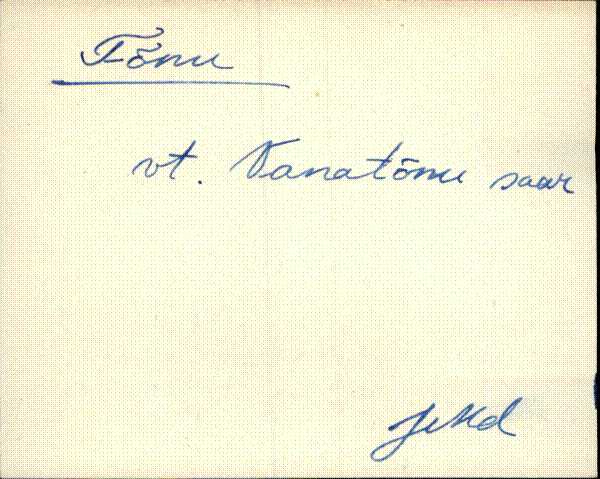 Tõnu
vt. Vanatõnu saar
JMd